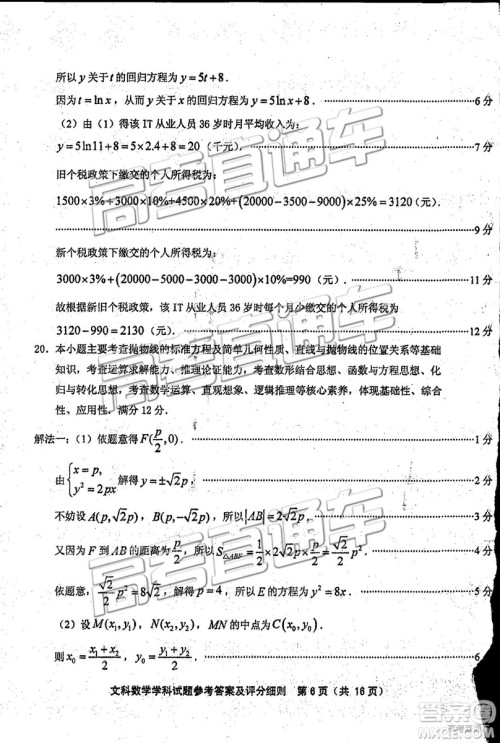 所以 y 关于 t 的回归方程为 y=5t+8.
因为 t=ln x，从而 y 关于 x 的回归方程为 y=5ln x+8. 6分
（2）由（1）得该 IT 从业人员 36 岁时月平均收入为：
y=5ln11+8=5×2.4+8=20（千元）. 7分
旧个税政策下缴交的个人所得税为：
1500×3%+3000×10%+4500×20%+(20000-3500-9000)×25%=3120（元）.
9分
新个税政策下缴交的个人所得税为：
3000×3%+(20000-5000-3000-2000-3000)×10%=990（元）. 11分
故根据新旧个税政策，该 IT 从业人员 36 岁时每个月少缴交的个人所得税为
3120-990=2130（元）. 12分
20. 本小题主要考查抛物线的标准方程及简单几何性质、直线与抛物线的位置关系等基础
知识，考查运算求解能力、推理论证能力等，考查函数与方程思想、数形结合思想、函数与方程思想、化
归与转化思想，考查数学运算、直观想象、逻辑推理等核心素养，体现基础性、综合
性、应用性. 满分 12 分.
解法一：（1）依题意得 F(p/2,0). 1分
由 {x=p, y²=2px 解得 y=±√2p, 2分
不妨设 A(p,√2p), B(p,-√2p), 所以|AB|=2√2p, 3分
又因为 F 到 AB 的距离为 p/2, 所以 S△ABF=1/2×p/2×2√2p=√2/2p². 4分
依题意, √2/2 p²=8√2, 解得 p=4, 所以 E 的方程为 y²=8x. 5分
（2）设 M(x₁,y₁), N(x₂,y₂), MN 的中点为 C(x₀,y₀).
则 x₀=(x₁+x₂)/2, y₀=(y₁+y₂)/2. 6分
文科数学学科试题参考答案及评分细则 第 6 页（共 16 页）
高考直通车
高考直通车
高考直通车